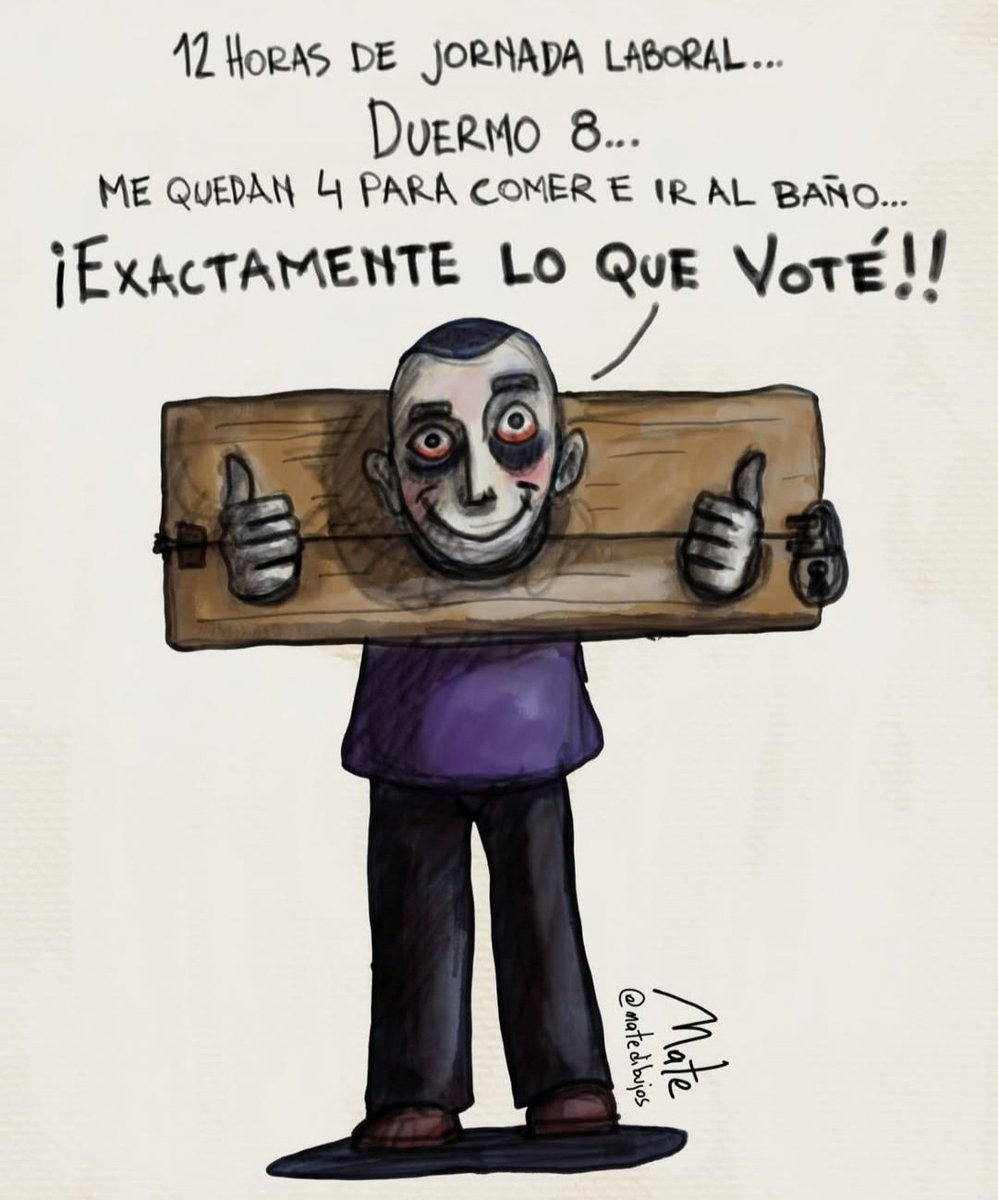 12 HORAS DE JORNADA LABORAL...
DUERMO 8...
ME QUEDAN 4 PARA COMER E IR AL BAÑO...
¡EXACTAMENTE LO QUE VOTÉ!!
Mate
@matedibujos